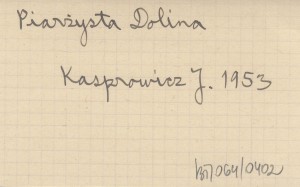 Piarżysta Dolina
Kasprowicz J. 1953
/064/0402